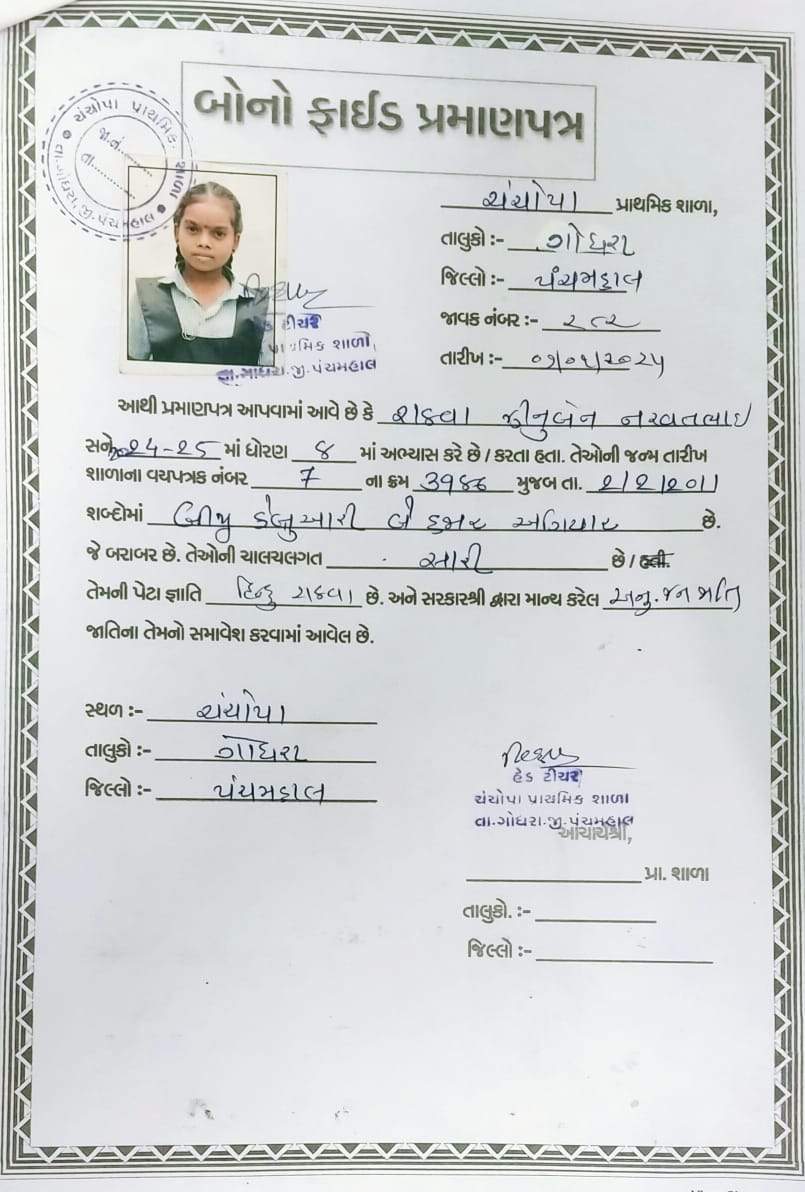 બોનો ફાઈડ પ્રમાણપત્ર
ચંચોપા પ્રાથમિક શાળા
તા.ગોધરા, જી.પંચમહાલ
જા.નં.
તા.
ચંચોપા પ્રાથમિક શાળા,
તાલુકો :- ગોધરા
જિલ્લો :- પંચમહાલ
જાવક નંબર :- ૨૮૨
તારીખ :-
હેડ ટીચર
પ્રાથમિક શાળા
તા.ગોધરા.જી.પંચમહાલ
આથી પ્રમાણપત્ર આપવામાં આવે છે કે રાઠવા જીનુબેન નરવતભાઈ
સને ૨૦24-25 માં ધોરણ ૪ માં અભ્યાસ કરે છે / કરતા હતા. તેઓની જન્મ તારીખ
શાળાના વયપત્રક નંબર 7 ના ક્રમ મુજબ તા. ૨/૨/૨૦11
શબ્દોમાં બીજી ફેબ્રુઆરી બે હજાર અગિયાર છે.
જે બરાબર છે. તેઓની ચાલચલગત સારી છે / હતી.
તેમની પેટા જ્ઞાતિ હિન્દુ રાઠવા છે. અને સરકારશ્રી દ્વારા માન્ય કરેલ અનુ. જન જાતિ
જાતિના તેમનો સમાવેશ કરવામાં આવેલ છે.
સ્થળ :- ચંચોપા
તાલુકો :- ગોધરા
જિલ્લો :- પંચમહાલ
હેડ ટીચર
ચંચોપા પ્રાથમિક શાળા
તા.ગોધરા.જી.પંચમહાલ
આચાર્યશ્રી,
પ્રા. શાળા
તાલુકો. :-
જિલ્લો :-